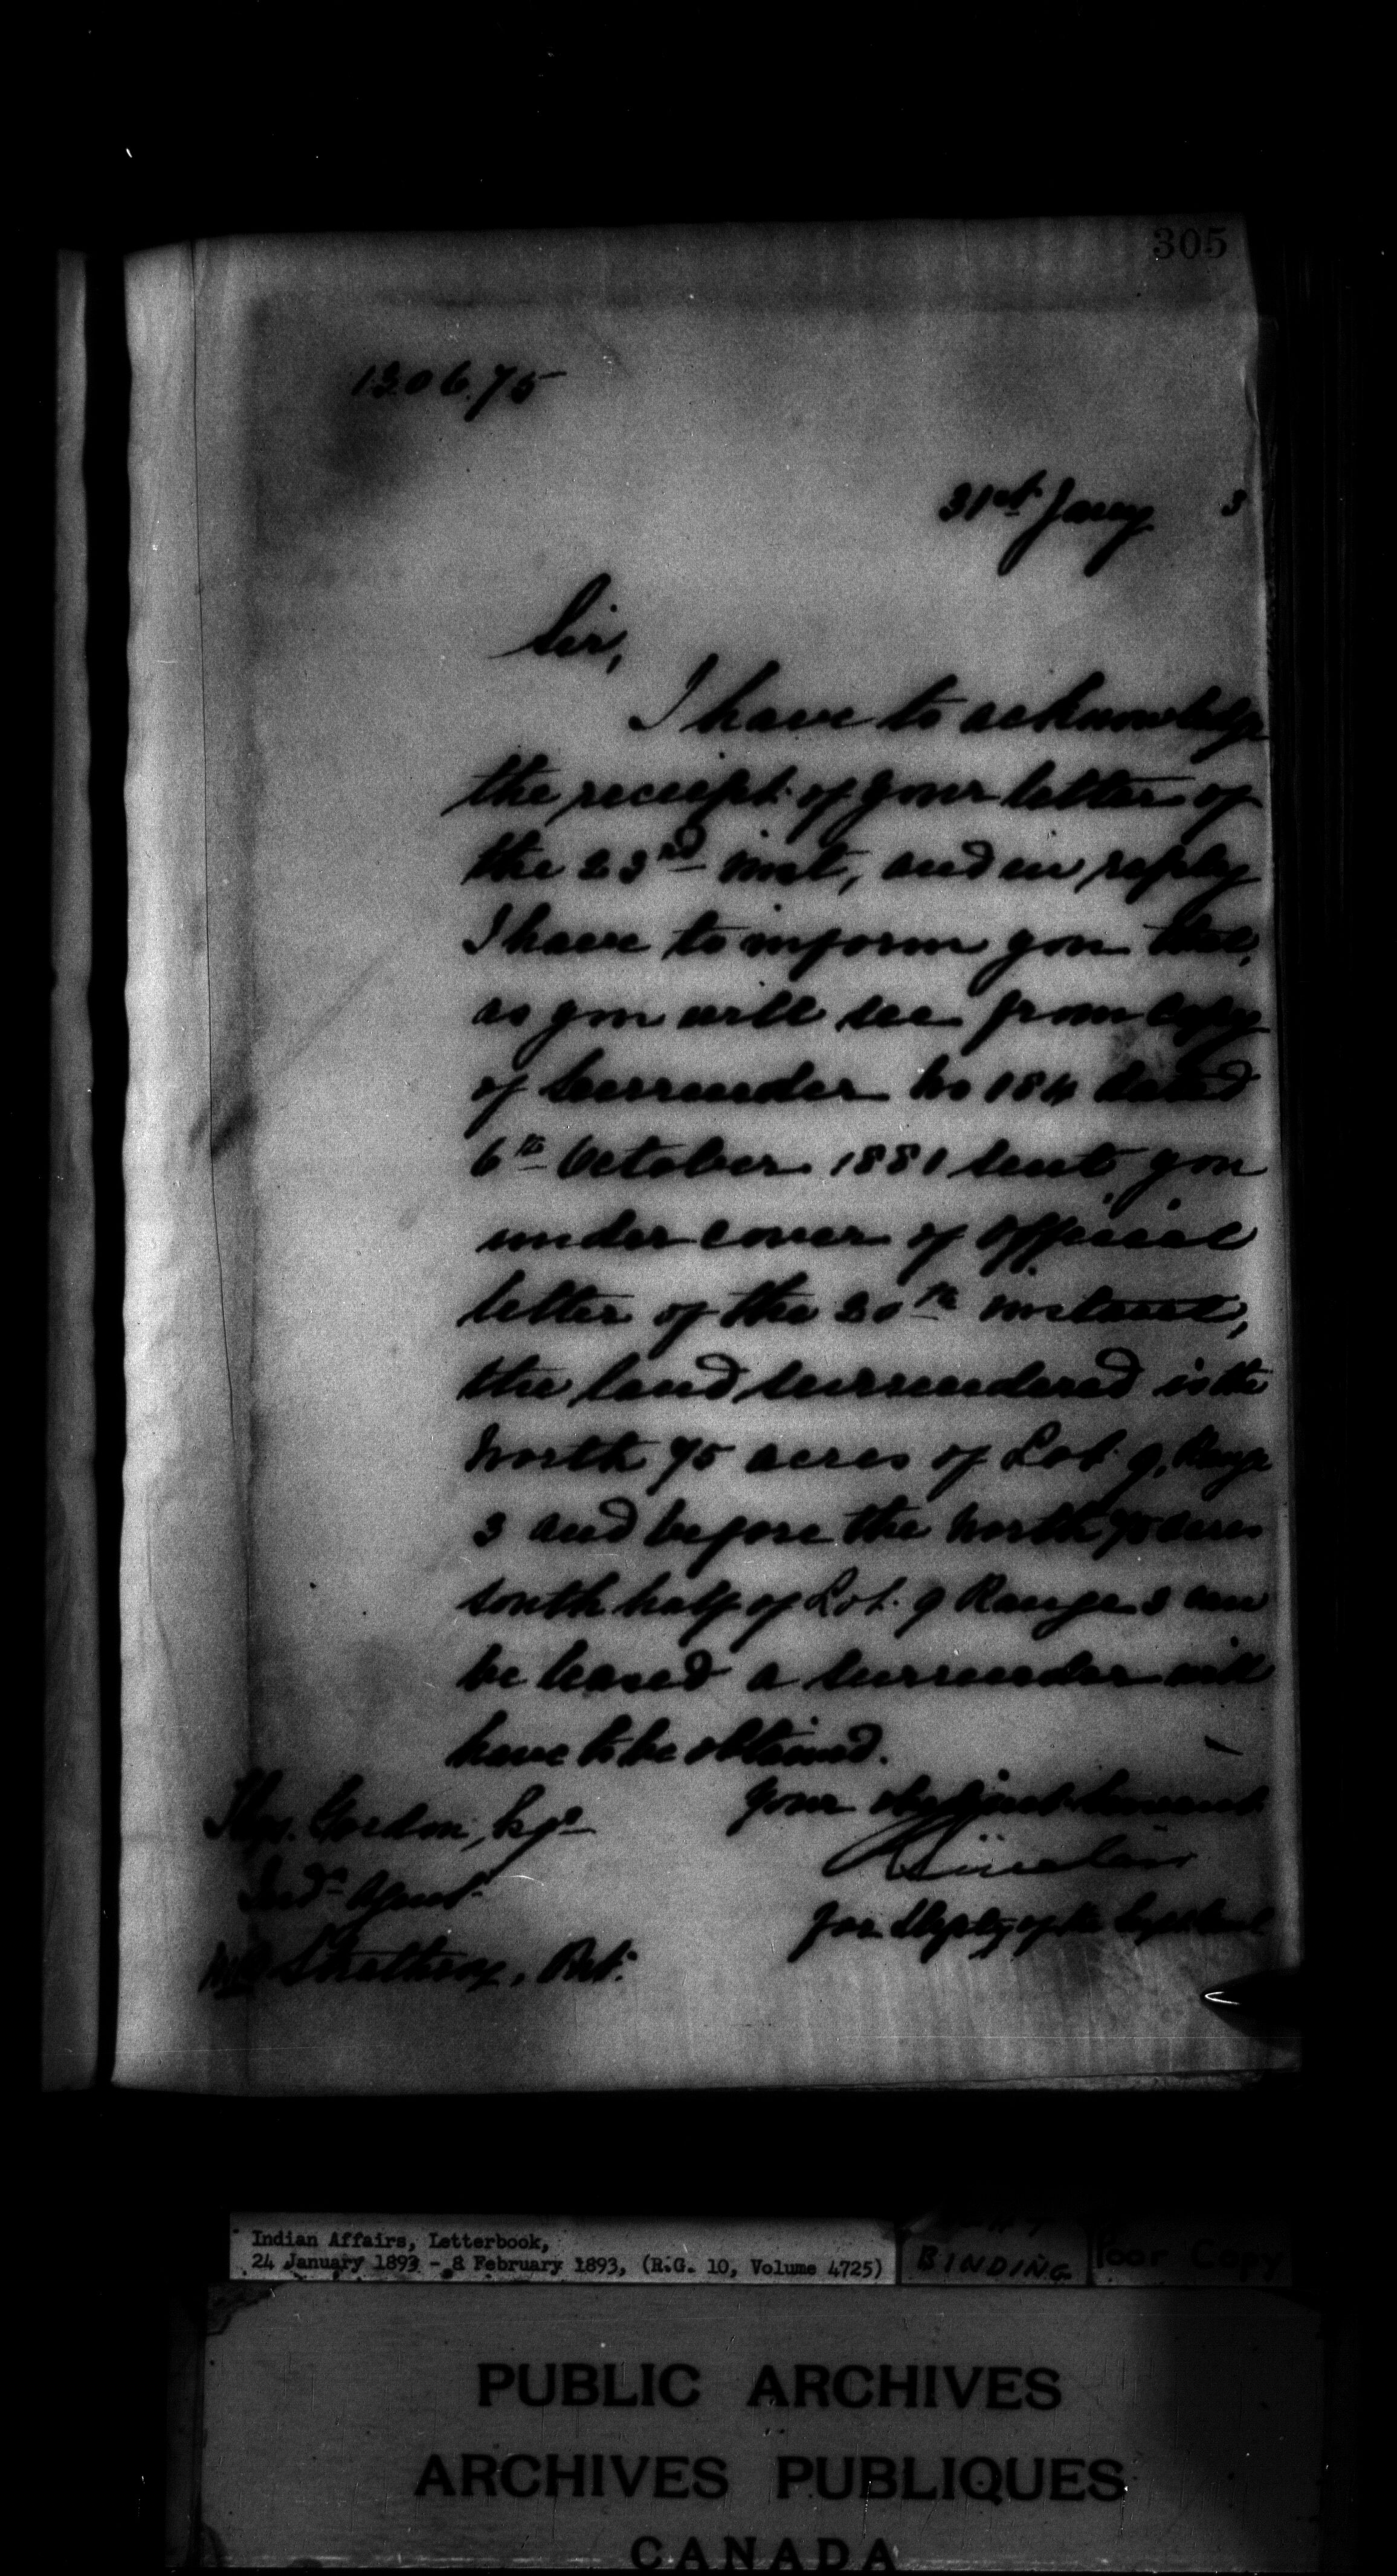 305
130675
31st Jany 3
Sir,
I have to acknowledge
the receipt of your letter of
the 23rd inst, and in reply
I have to inform you that,
as you will see from copy
of Surrender No 184 dated
6th October 1881 sent you
under cover of official
letter of the 20th instant,
the land surrendered is the
North 75 acres of Lot 9, Range
3 and before the North 75 acres
south half of Lot 9 Range 3 can
be leased a surrender will
have to be obtained.
Your obedient servant
Sinclair
for Deputy of the Supt Genl
Thos. Gordon, Esqr
Indn Agent
Strathroy, Ont.
Indian Affairs, Letterbook,
24 January 1893 - 8 February 1893, (R.G. 10, Volume 4725)
BINDING
Poor Copy
PUBLIC ARCHIVES
ARCHIVES PUBLIQUES
CANADA